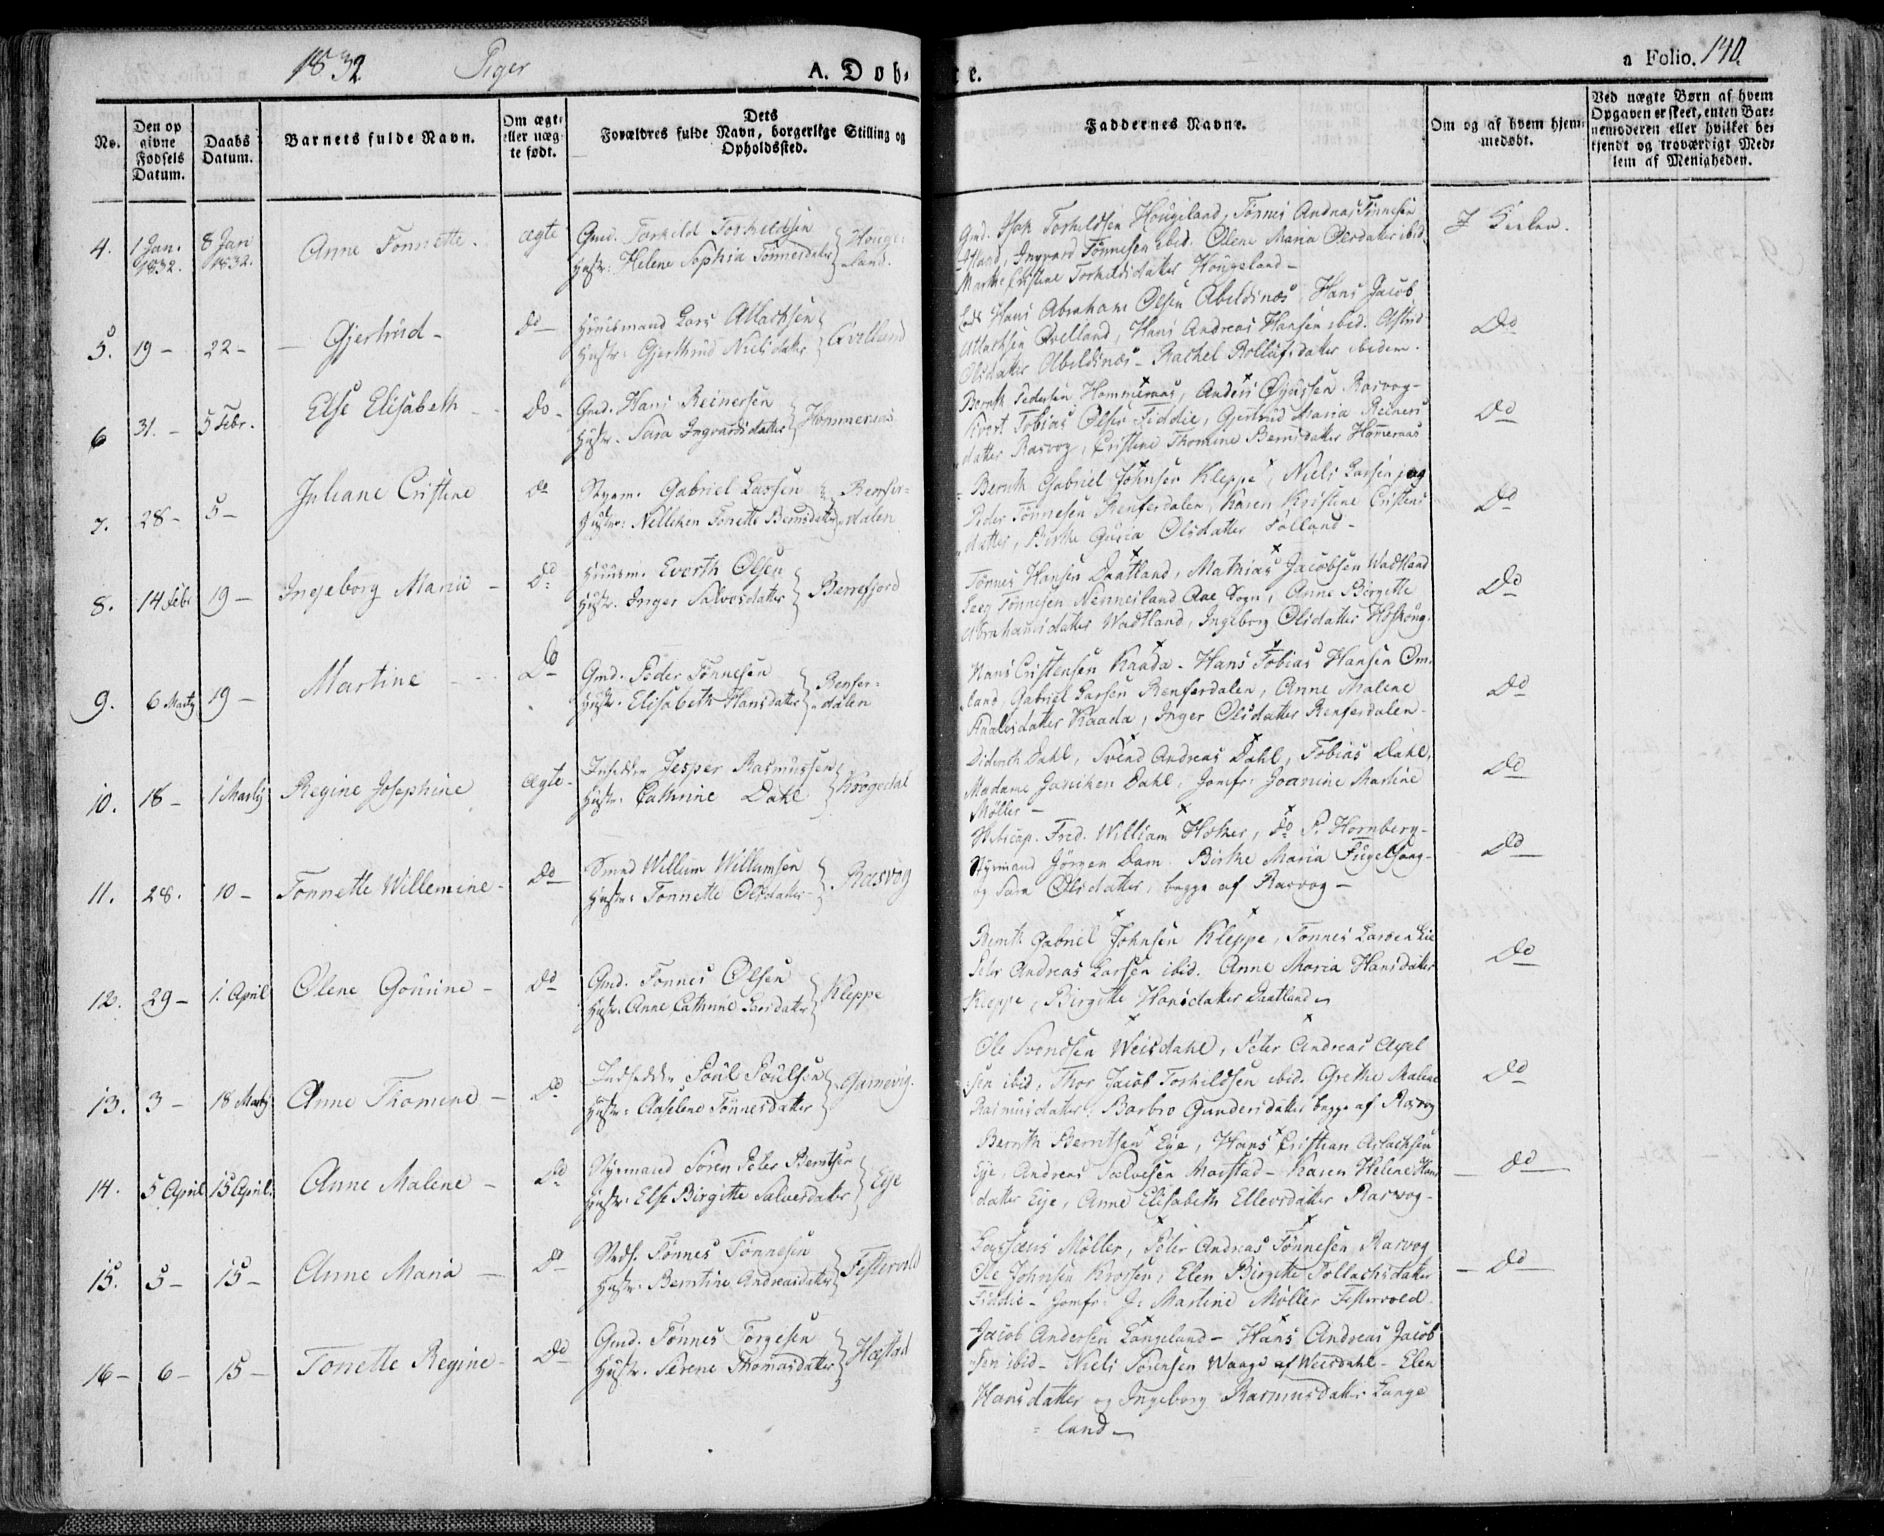 1832 Piger A. Døb-
te. a Folio. 140.
No.
Den op
givne
Fødsels
Datum.
Daabs
Datum.
Barnets fulde Navn.
Om ægte
eller uæg-
te født.
Dets
Forældres fulde Navn, borgerlige Stilling og
Opholdssted.
Faddernes Navne.
Om og af hvem hjem-
medøbt.
Ved uægte Børn af hvem
Opgaven er skeet, enten Bar-
nemoderen eller hvilket be-
kjendt og troværdigt Med-
lem af Menigheden.
4. 1 Jan. 1832. 8 Jan 1832. Anne Tonnette. ægte
Gmd. Torkeld Torkeldsen
Hustr: Helene Sophia Tönnesdatter
Houge-
land.
Gmd. Isak Torkildsen Hougeland, Tönnes Andreas Tönnesen
Ingvard Tönnesen ibid. Olene Maria Olsdatter ibid.
Marthe Cristine Torkildsdatter Hougeland -
I Kirken.
5. 19 - 22 - Gjertrud - Do
Huusmand Lars Atlachsen
Hustr: Gjerthrud Nielsdatter
Qvelland
Hans Abraham Olsen Abeldsnæs, Hans Jacob
Atlachsen Qvelland, Hans Andreas Hansen ibid. Astrid
Olsdatter Abeldsnæs - Rachel Rollufsdatter ibidem.
Do
6 31. - 5 Febr. Else Elisabeth - Do -
Gmd. Hans Reinersen
Hustr. Sara Ingvardsdatter
Hommeraas
Bernt Pedersen Hommeraas, Anders Øyussen Rasvog -
Tobias Olsen Fiddie, Gjertrud Maria Reiners
datter Rasvog, Cristine Thomine Berntsdatter Homeraas
Do
7. 28 - 5 - Juliane Cristine Do
Styrm. Gabriel Larsen
Hustr: Nelleken Tonette Berntsdatter
Renfer-
dalen
Bernth Gabriel Johnsen Kleppe, Niels Larsen, og
Peder Tönnesen Renferdalen, Karen Kristine Cristens
datter, Birthe Guria Olsdatter Følland -
Do
8. 14 Febr 19 - Ingeborg Maria - Do
Huusm. Everth Olsen
Hustr. Inger Salvesdatter
Berrefjord
Tönnes Hansen Daatland, Mathias Jacobsen Wadtland
Tönnesen Nennesland Aae Sogn, Anne Börgitte
Abrahamsdatter Wadtland, Ingeborg Olsdatter
Do
9. 6 Marty 19 - Martine - Do
Gmd. Peder Tönnesen
Hustr. Elisabeth Hansdatter
Renfer-
dalen
Hans Cristensen Kaada - Hans Tobias Hansen Om-
land, Gabriel Larsen Renferdalen, Anne Malene
datter Kaada, Inger Olsdatter Renferdalen -
Do
10. 18 - 1 Marty Regine Josephine ægte -
Jesper Rasmussen
Hustr: Cathrine Dahl
Krogedal
Diderich Dahl, Svend Andreas Dahl, Tobias Dahl,
Madame Janiken Dahl, Jomfr: Joanine Martine
Møller -
Do
11. 28. 10 - Tonnette Willemine - Do
Willum Willumsen
Hustr: Tonnette Olsdatter
Rasvog
Fred. William Hother, Do P. Hornberg -
Styrmand Jörgen Dam. Birthe Maria Fugelsang -
og Sara Olsdatter, begge af Rasvog -
Do
12. 29 - 1. April Olene Gonnine - Do
Gmd. Tonnes Olsen
Hustr. Anne Cathrine Larsdatter
Kleppe
Bernth Gabriel Johnsen Kleppe, Tonnes Larsen Lie
Peter Andreas Larsen ibid. Anne Maria Hansdatter
Kleppe, Birgitte Hansdatter Daatland
Do
13. 3 - 18 Marty Anne Thomine - Do
Poul Poulsen
Hustr: Aaselene Tönnesdatter
Gamevig.
Ole Svendsen Weisdahl, Peter Andreas Axel
sen ibid, Thor Jacob Torkildsen ibid. Grethe Malene
Rasmusdatter, Barbro Gundersdatter begge af Rasvog
Do
14. 5 April 15 April. Anne Malene - Do
Styrmand Sören Peter Berntsen
Hustr: Else Birgitte Salvesdatter
Eye
Bernth Berntsen Eye, Hans Cristian Aslachsen
Eye, Andreas Salvesen Marstad - Karen Helene Hans
datter Eye, Anne Elisabeth Ellevsdatter Rasvog -
Do
15. 5 - 15 - Anne Maria - Do
Tönnes Tönnesen
Hustr: Berntine Andreasdatter
Festervold
Lassæus Møller, Peter Andreas Tönnesen Rasvog
Ole Johnsen Krossen, Elen Birgitte Tollachsdatter
Fiddie - Jomfr: J: Martine Møller Festervold.
Do
16 - 6 - 15 - Tonette Regine - Do
Gmd. Tönnes Torgesen
Hustr. Serene Thomasdatter
Hæstad
Jacob Andersen Langeland - Hans Andreas Jacob
sen ibid - Niels Sørensen Waage af Weisdahl - Elen
Hansdatter og Ingeborg Rasmusdatter Lange
= land -